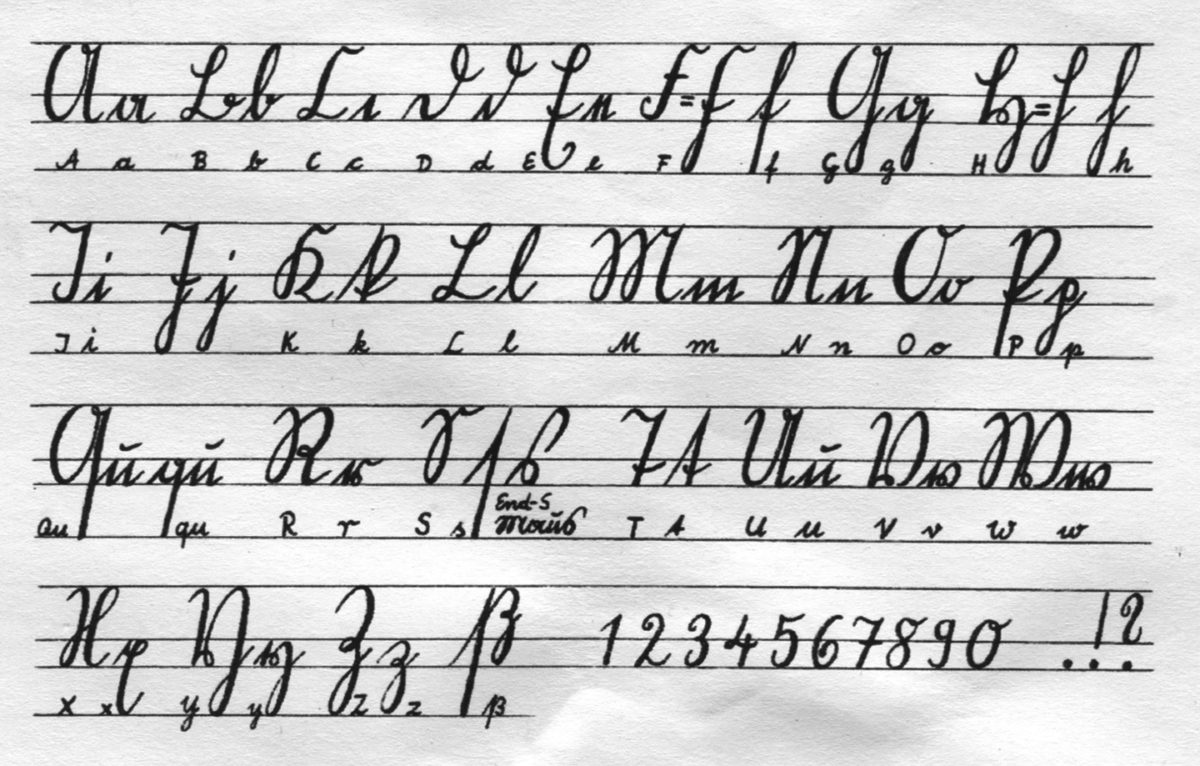 Aa Bb Cc Dd Ee F=F f Gg H=H h
A a B b C c D d E e F f G g H h
Ii Jj Kk Ll Mm Nn Oo Pp
I i K k L l M m N n O o P p
Ququ Rr Sſs Tt Uu Vv Ww
End-S
Qu qu R r S s Maus T t U u V v W w
Xx Yy Zz ß 1234567890 ...!?
x x y y z z ß